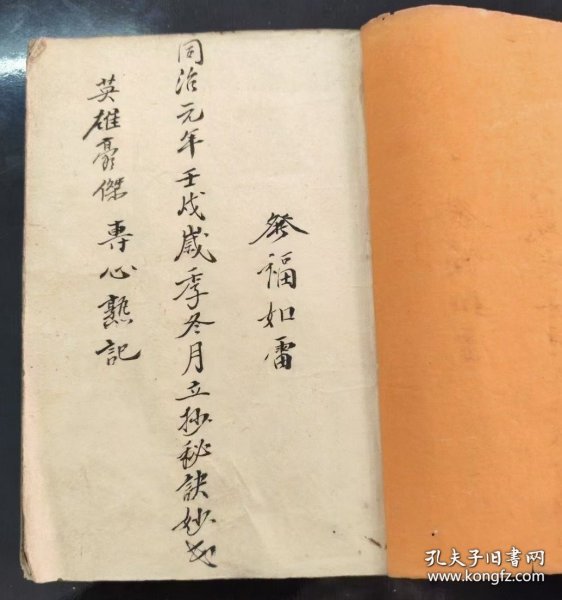 發福如雷
同治元年壬戌歲季冬月立抄秘訣妙也
英雄豪傑 專心熟記
孔夫子旧书网
www.kongfz.com